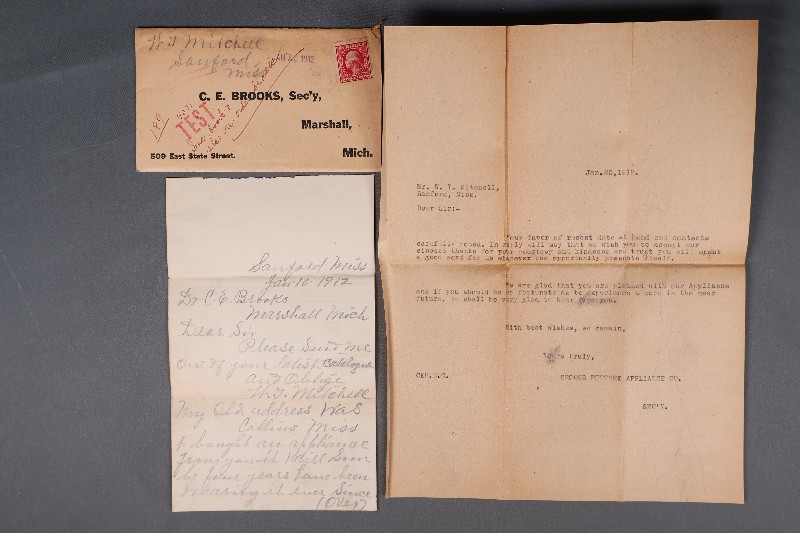 W T Mitchell
Sanford,
Miss
1912
C. E. BROOKS, Sec'y,
TEST
Marshall,
509 East State Street.
Mich.
Sanford Miss
Jan 10. 1912
Dr C. E. Brooks
Marshall Mich
Dear Sir
Please Send me
one of your latest catalogue
and oblige
W. T. Mitchell
My old address was
Collins Miss
I bought an appliance
from you it will soon
be four years have been
wearing it ever since
(Over)
Jan.20,1912.
Mr. W. T. Mitchell,
Sanford, Miss.
Dear Sir:-
Your favor of recent date at hand and contents
carefully noted. In reply will say that we wish you to accept our
sincere thanks for your courtesy and kindness and trust you will speak
a good word for us whenever the opportunity presents itself.
We are glad that you are pleased with our Appliance
and if you should be so fortunate as to experience a cure in the near
future, we shall be very glad to hear
With best wishes, we remain,
Yours truly,
CEB.
BROOKS RUPTURE APPLIANCE CO.
SEC'Y.